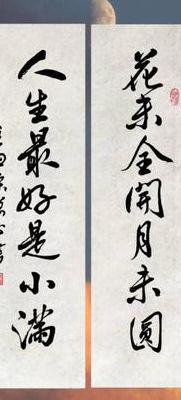 花未全開月未圓
人生最好是小滿